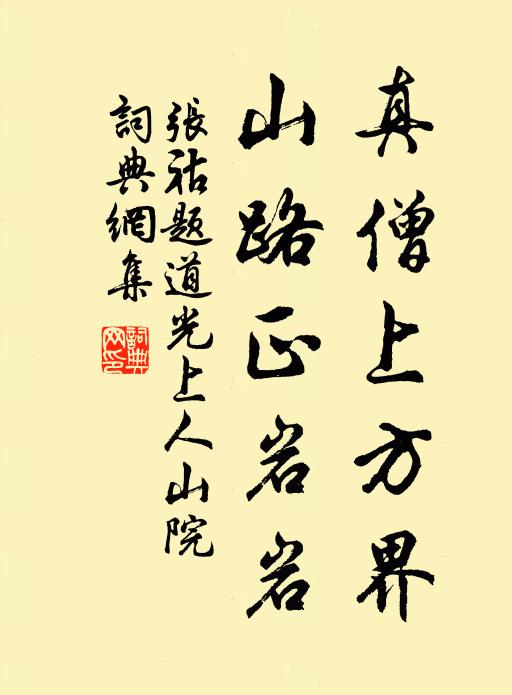 真僧上方界
山路正岩岩
張祜題道光上人山院
詞典網集
詞典網印